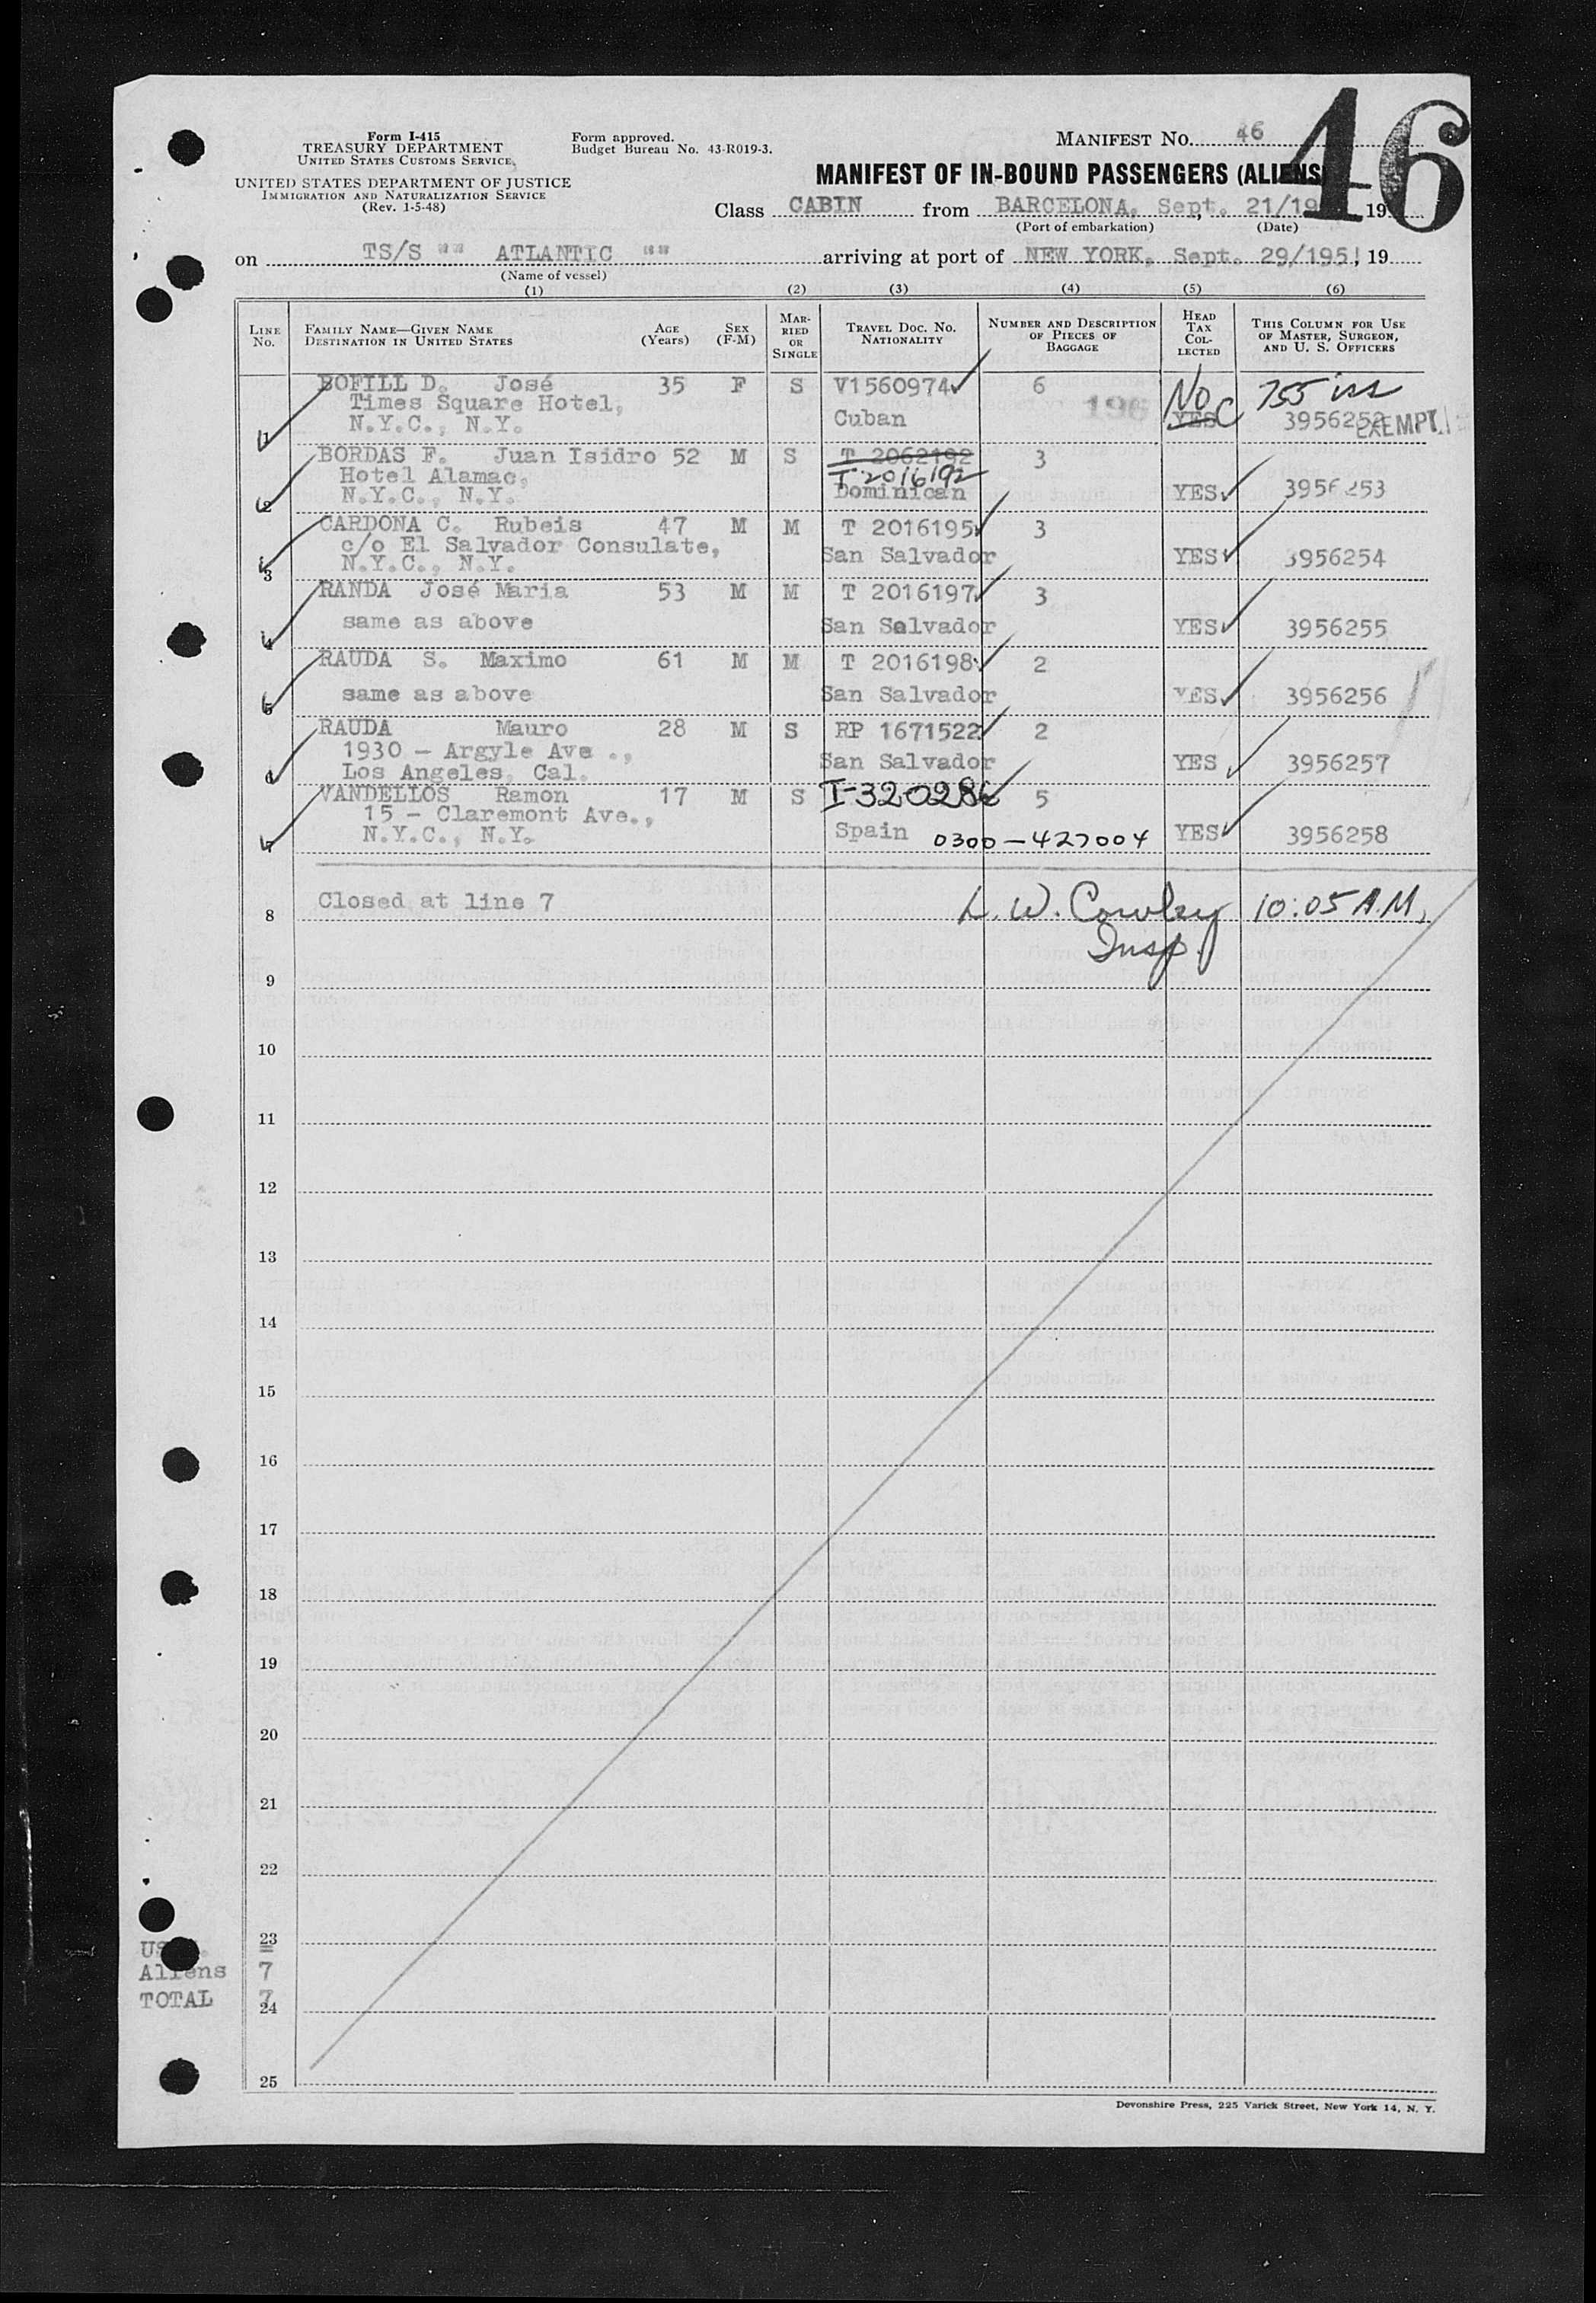 46
Form I-415
TREASURY DEPARTMENT
UNITED STATES CUSTOMS SERVICE
UNITED STATES DEPARTMENT OF JUSTICE
IMMIGRATION AND NATURALIZATION SERVICE
(Rev. 1-5-48)
Form approved.
Budget Bureau No. 43-R019-3.
MANIFEST No. 46
MANIFEST OF IN-BOUND PASSENGERS (ALIENS)
Class CABIN from BARCELONA, Sept. 21/19 19
(Port of embarkation) (Date)
on TS/S "" ATLANTIC "" arriving at port of NEW YORK, Sept. 29/1951 19
(Name of vessel)
(1) (2) (3) (4) (5) (6)
LINE No. FAMILY NAME—GIVEN NAME DESTINATION IN UNITED STATES AGE (Years) SEX (F-M) MARRIED OR SINGLE TRAVEL DOC. NO. NATIONALITY NUMBER AND DESCRIPTION OF PIECES OF BAGGAGE HEAD TAX COLLECTED THIS COLUMN FOR USE OF MASTER, SURGEON, AND U. S. OFFICERS
BOFILL D. José 35 F S V1560974 6 No 755
Times Square Hotel,
1 N.Y.C., N.Y. Cuban 196 YES C 3956252 EXEMPT
BORDAS F. Juan Isidro 52 M S T 2062192 3
Hotel Alamac, T-2016192
2 N.Y.C., N.Y. Dominican YES 3956253
CARDONA C. Rubeis 47 M M T 2016195 3
c/o El Salvador Consulate,
3 N.Y.C., N.Y. San Salvador YES 3956254
RANDA José Maria 53 M M T 2016197 3
4 same as above San Salvador YES 3956255
RAUDA S. Maximo 61 M M T 2016198 2
5 same as above San Salvador YES 3956256
RAUDA Mauro 28 M S RP 1671522 2
1930 - Argyle Ave .,
6 Los Angeles, Cal. San Salvador YES 3956257
VANDELLOS Ramon 17 M S I-320286 5
15 - Claremont Ave.,
7 N.Y.C., N.Y. Spain 0300-427004 YES 3956258
8 Closed at line 7 L. W. Cowley 10:05 A.M.
Insp.
9
10
11
12
13
14
15
16
17
18
19
20
21
22
23
US =
Aliens 7
TOTAL 7
24
25
Devonshire Press, 225 Varick Street, New York 14, N. Y.